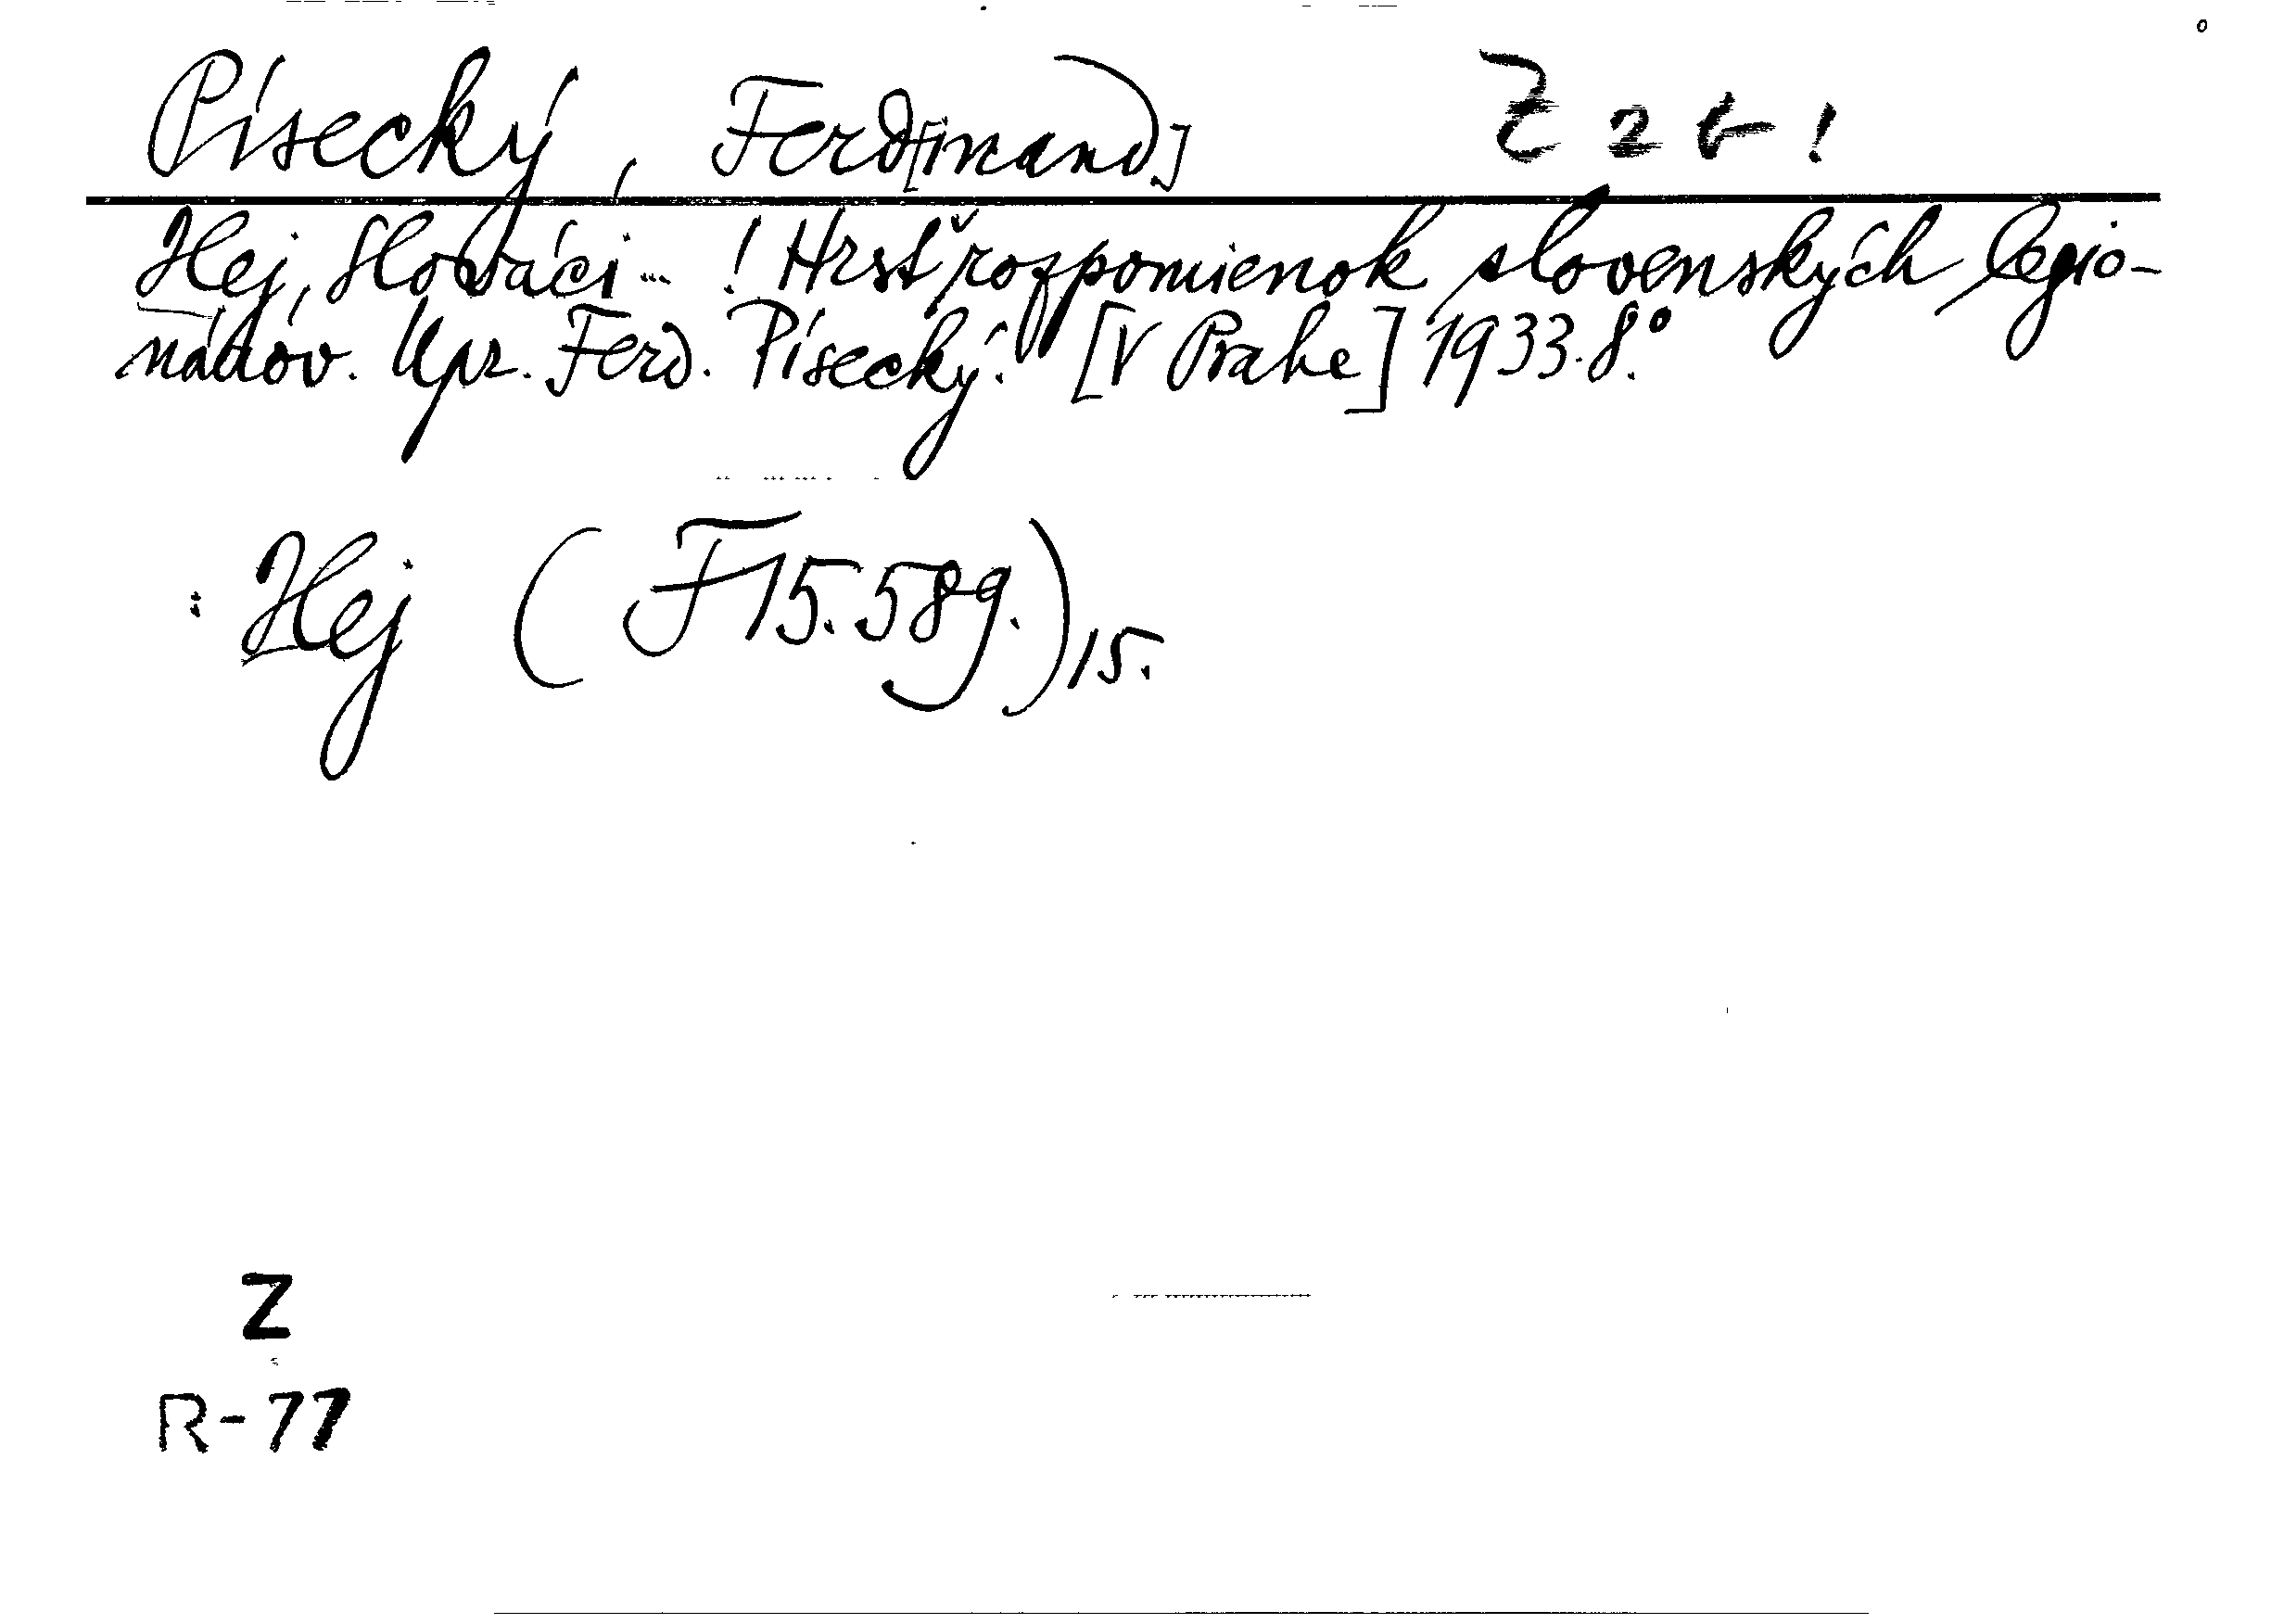 Písecký, Ferd[inand]
Hej, Slováci... ! Hrsť rozpomienok slovenských legio-
nárov. Upr. Ferd. Písecký. [V Prahe] 1933. 8.°
: Hej (F 15.589.) 15.
Z
R-77